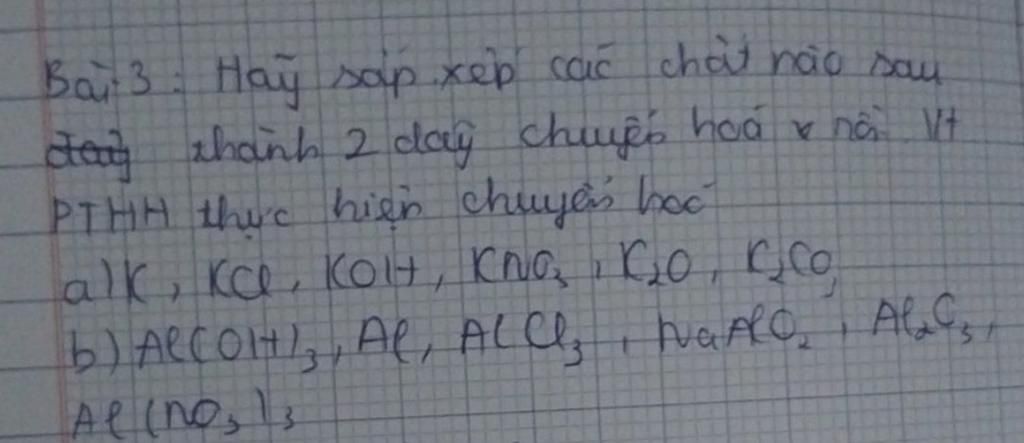 Bài 3: Hãy sắp xếp các chất nào sau
thành 2 dãy chuyển hoá v nối Vt
PTHH thực hiện chuyển hoá
a) K, KCl, KOH, KNO3, K2O, K2CO3
b) Al(OH)3, Al, AlCl3, NaAlO2, Al2C3,
Al(NO3)3